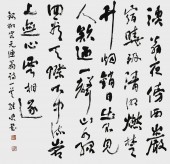 漁翁夜傍西巖
宿曉汲清湘燃楚
竹煙銷日出不見
人欸乃一聲山水綠
回看天際下中流岩
上無心雲相逐
柳宗元漁翁詩一首